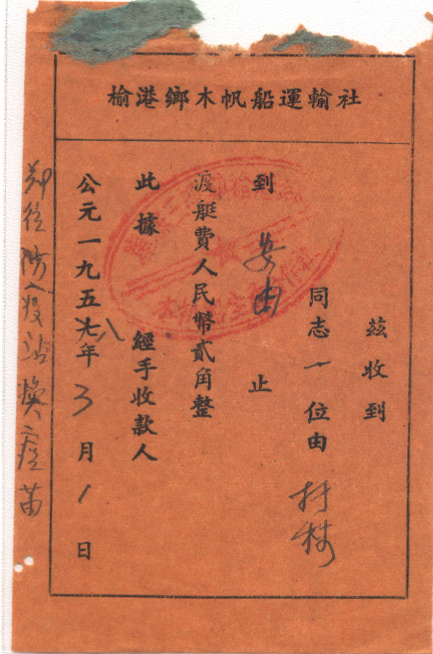 榆港鄉木帆船運輸社
茲收到
同志一位由
到 安由 止
渡艇費人民幣貳角整
此據 經手收款人
公元一九五七八年3月1日
往防疫站换疫苗